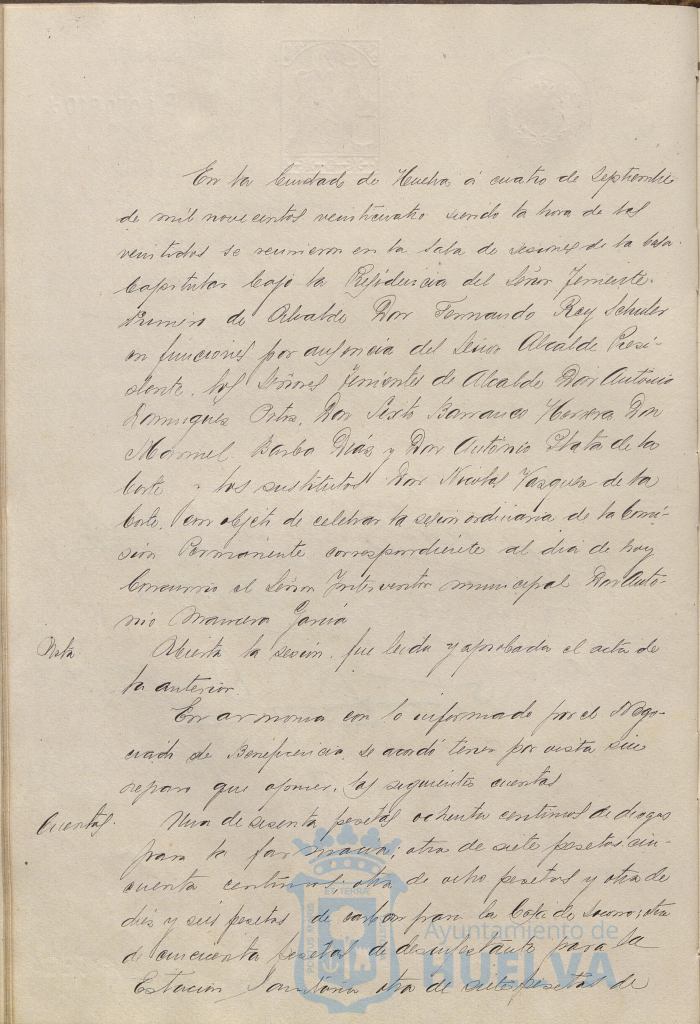 En la Ciudad de Huelva á cuatro de Septiembre
de mil novecientos veinticuatro siendo la hora de las
veintidos se reunieron en la Sala de sesiones de la Casa
Capitular bajo la Presidencia del Señor Teniente
Primero de Alcalde Don Fernando Rey Schuler
en funciones por ausencia del Señor Alcalde Presi-
dente, los Señores Tenientes de Alcalde Don Antonio
Dominguez Ortiz, Don Sixto Barranco Herrera Don
Manuel Barba Diáz y Don Antonio Plata de la
Corte y los sustitutos Don Nicolas Vazquez de la
Corte, con objeto de celebrar la sesion ordinaria de la Comi-
sion Permanente correspondiente al dia de hoy
Concurrio el Señor Interventor municipal Don Anto-
nio Mancera García
Acta. Abierta la sesión, fue leida y aprobada el acta de
la anterior.
En armonia con lo informado por el Nego-
ciado de Beneficencia, se acordó tener por vista sin
reparo que oponer, las siguientes cuentas
Cuentas. Una de sesenta pesetas ochenta centimos de drogas
para la farmacia; otra de siete pesetas cin-
cuenta centimos, otra de ocho pesetas y otra de
diez y seis pesetas de carbon para la Casa de Socorro; otra
de cincuenta pesetas de desinfectante para la
Estacion Sanitaria otra de siete pesetas de
Ayuntamiento de
HUELVA